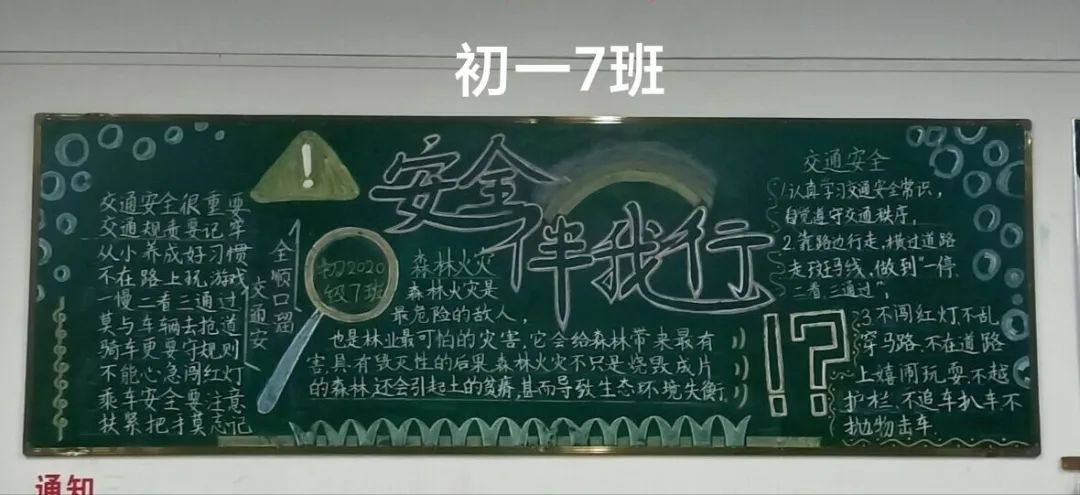 初一7班
安全伴我行
交通安全很重要
交通规责要记牢
从小养成好习惯
不在路上玩游戏
一慢二看三通过
莫与车辆去抢道
骑车更要守规则
不能心急闯红灯
乘车安全要注意
扶紧把手莫忘记
交通安
全顺口留
初2020
级7班
森林火灾
森林火灾是
最危险的敌人，
也是林业最可怕的灾害，它会给森林带来最有
害，具有毁灭性的后果。森林火灾不只是烧毁成片
的森林，还会引起土的贫瘠，甚而导致生态环境失衡
!?
交通安全
1.认真学习交通安全常识，
自觉遵守交通秩序，
2.靠路边行走，横过道路
走斑马线，做到“一停
二看三通过”，
3.不闯红灯，不乱
穿马路，不在道路
上嬉闹玩耍，不越
护栏，不追车扒车，不
抛物击车.
通知